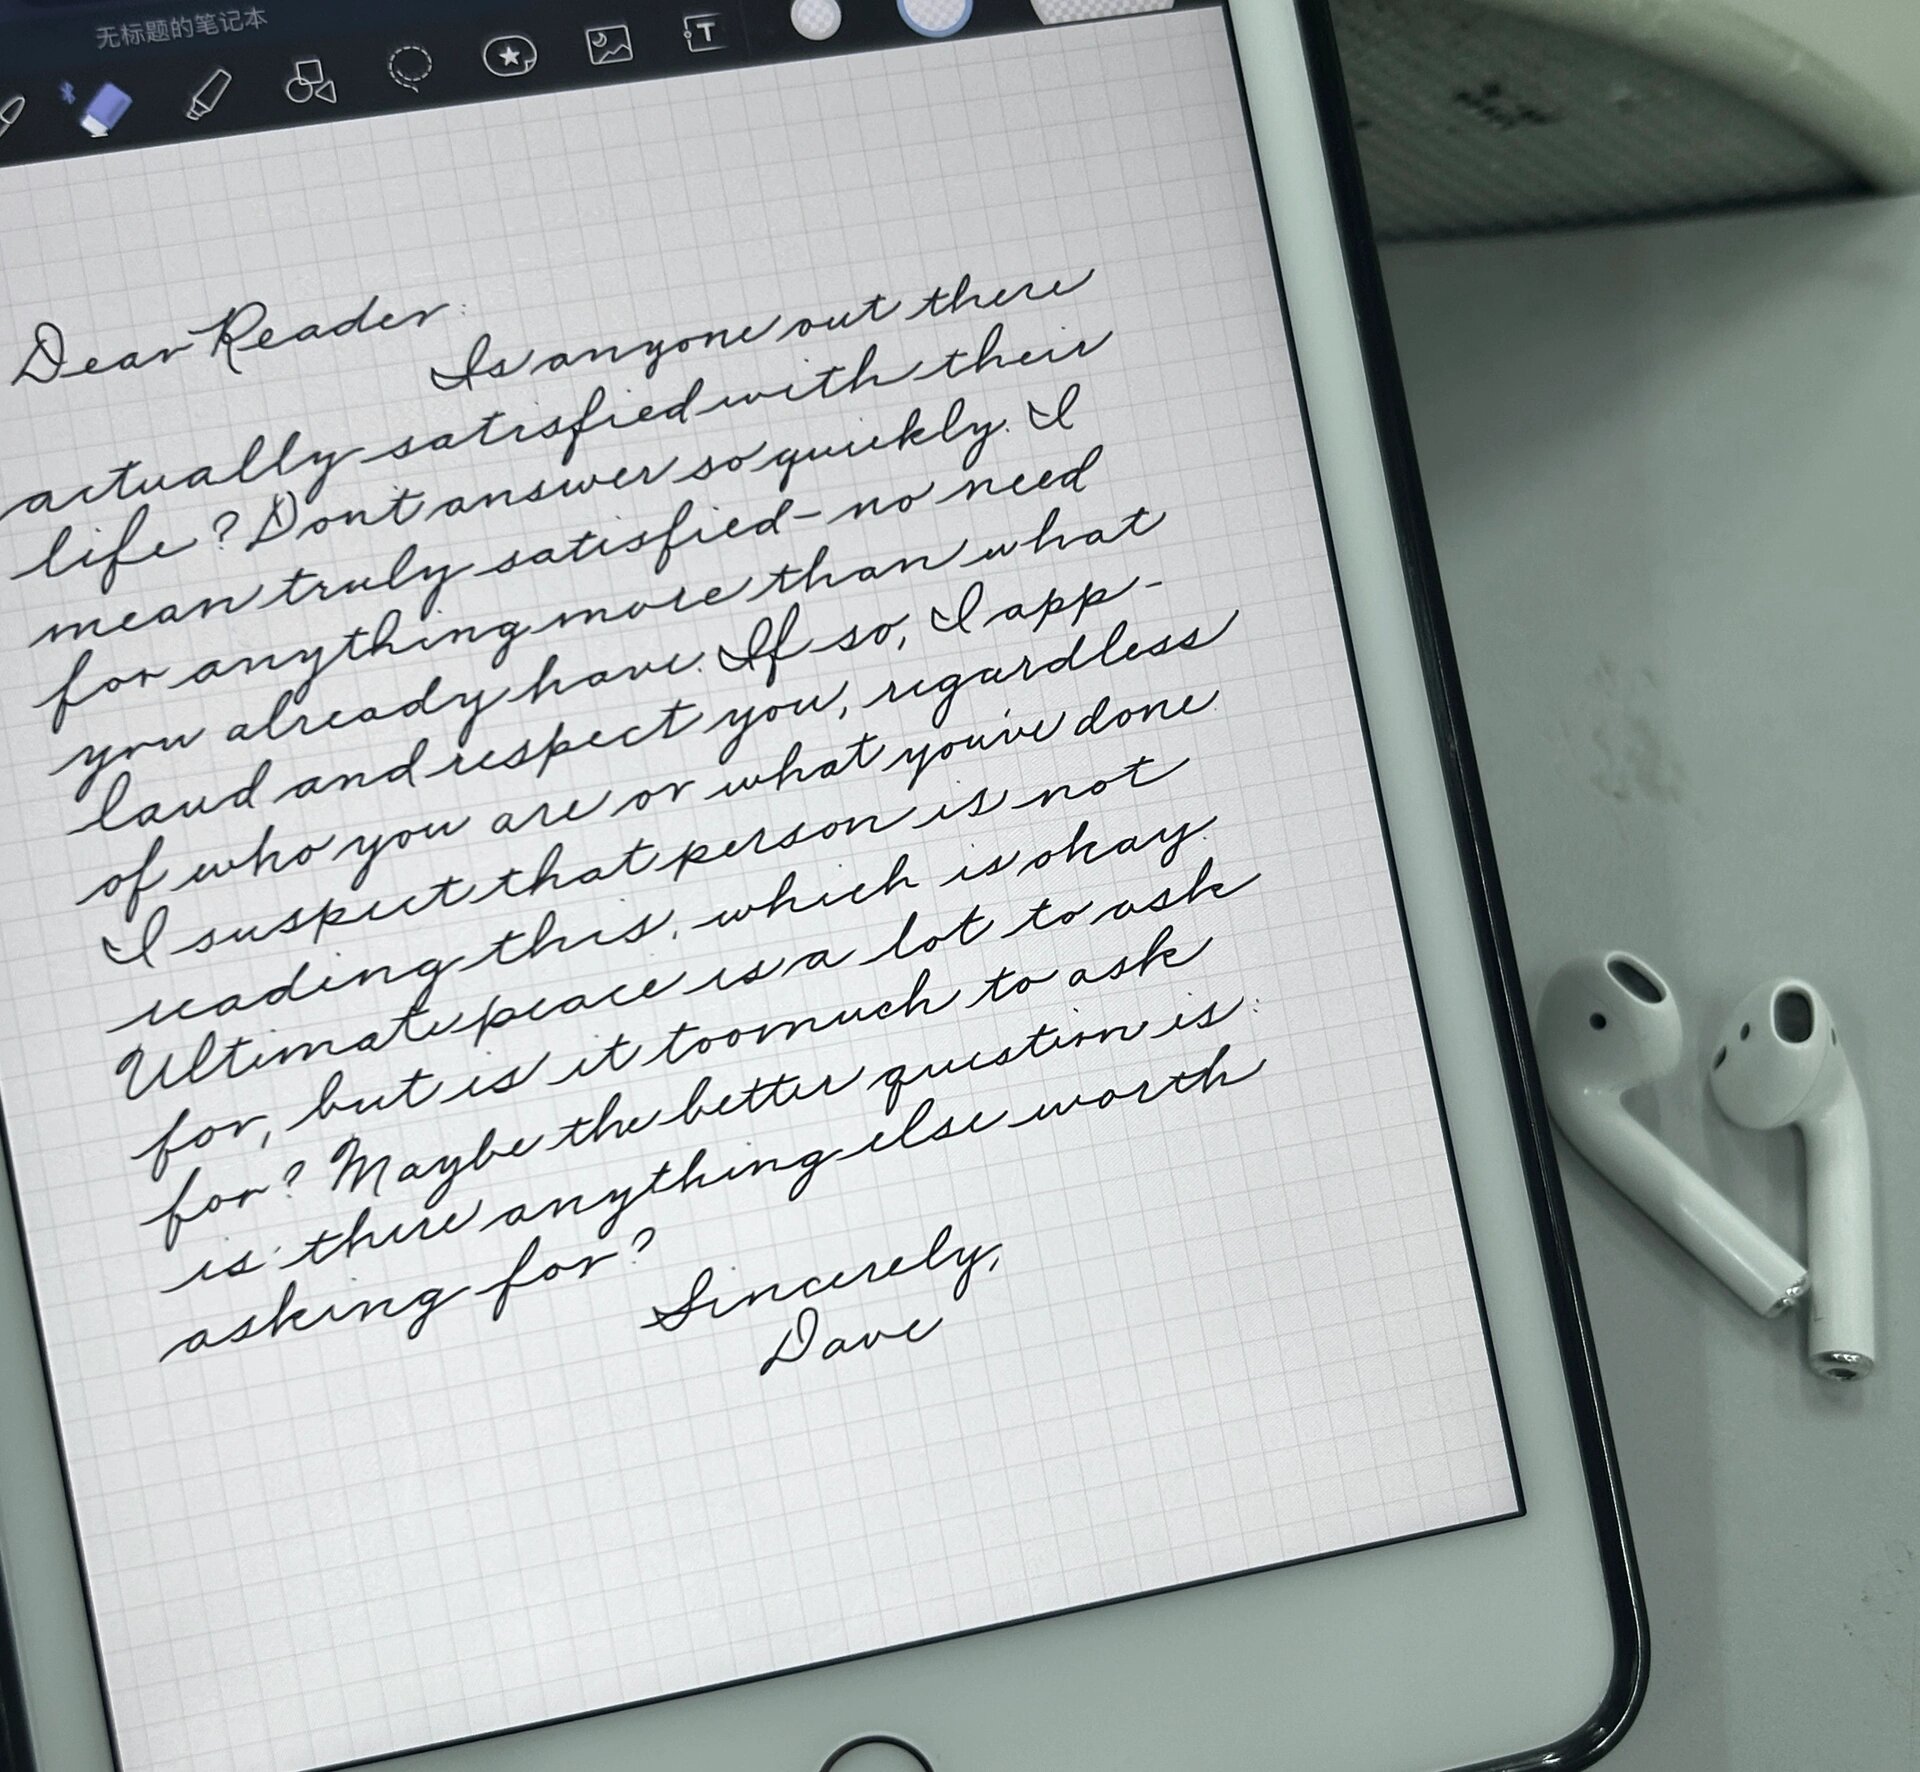 无标题的笔记本
T
Dear Reader:
Is anyone out there
actually satisfied with their
life? Dont answer so quickly. I
mean truly satisfied – no need
for anything more than what
you already have. If so, I app-
laud and respect you, regardless
of who you are or what you've done.
I suspect that person is not
reading this, which is okay.
Ultimate peace is a lot to ask
for, but is it too much to ask
for? Maybe the better question is:
is there anything else worth
asking for?
Sincerely,
Dave